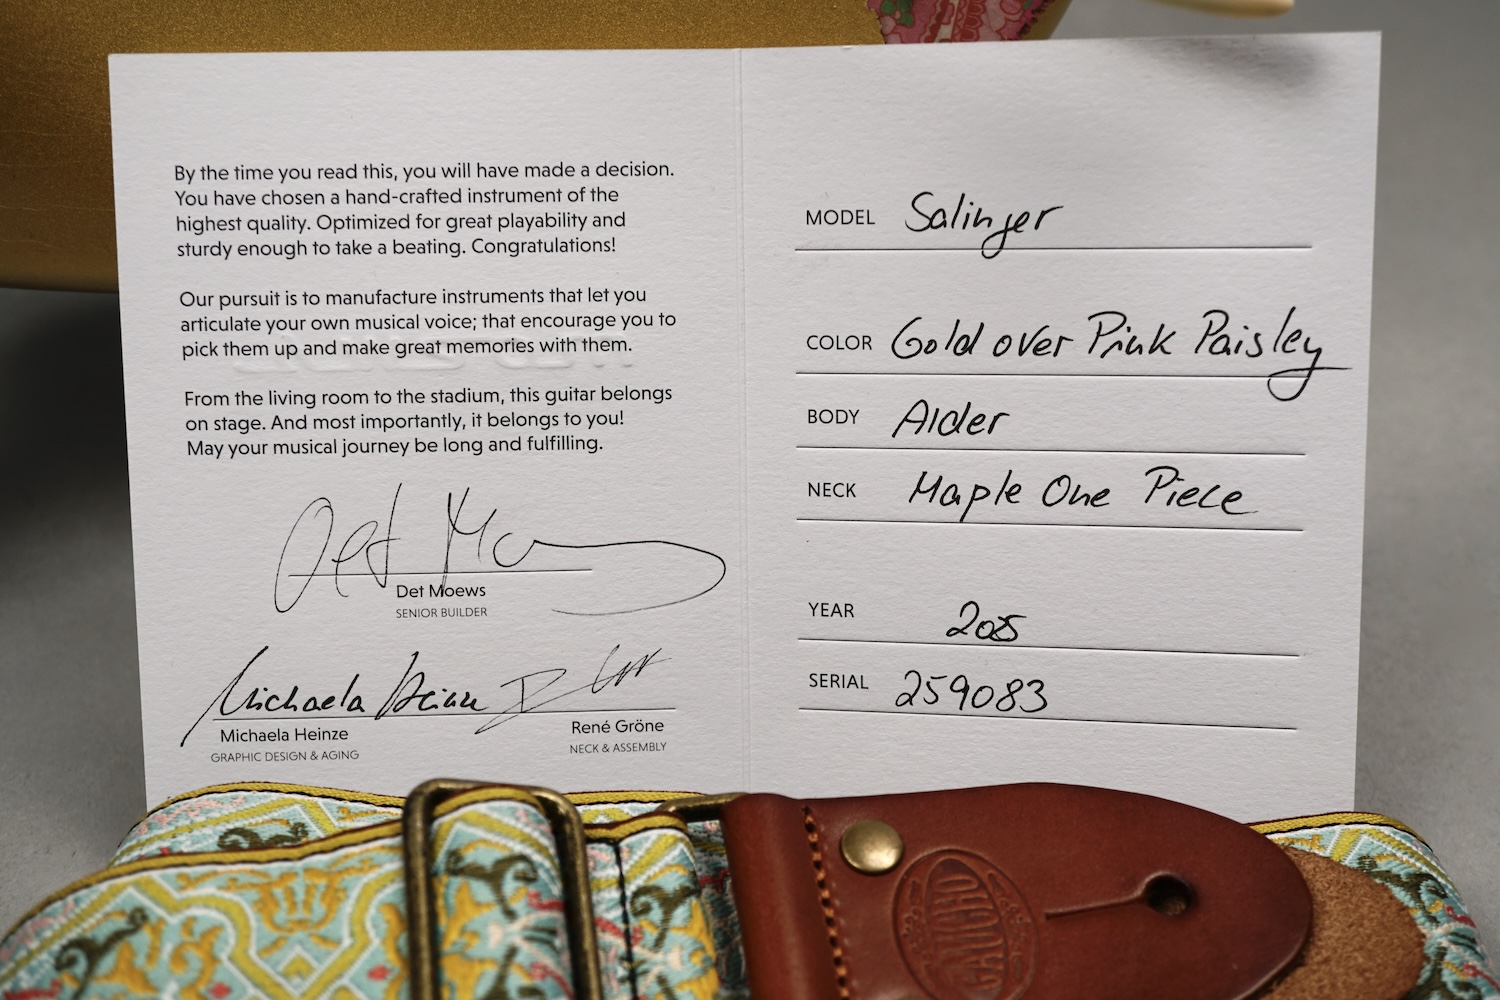 By the time you read this, you will have made a decision.
You have chosen a hand-crafted instrument of the
highest quality. Optimized for great playability and
sturdy enough to take a beating. Congratulations!
Our pursuit is to manufacture instruments that let you
articulate your own musical voice; that encourage you to
pick them up and make great memories with them.
From the living room to the stadium, this guitar belongs
on stage. And most importantly, it belongs to you!
May your musical journey be long and fulfilling.
Det Moews
SENIOR BUILDER
Michaela Heinze
Michaela Heinze
GRAPHIC DESIGN & AGING
René Gröne
NECK & ASSEMBLY
MODEL Salinger
COLOR Gold over Pink Paisley
BODY Alder
NECK Maple One Piece
YEAR
SERIAL 259083